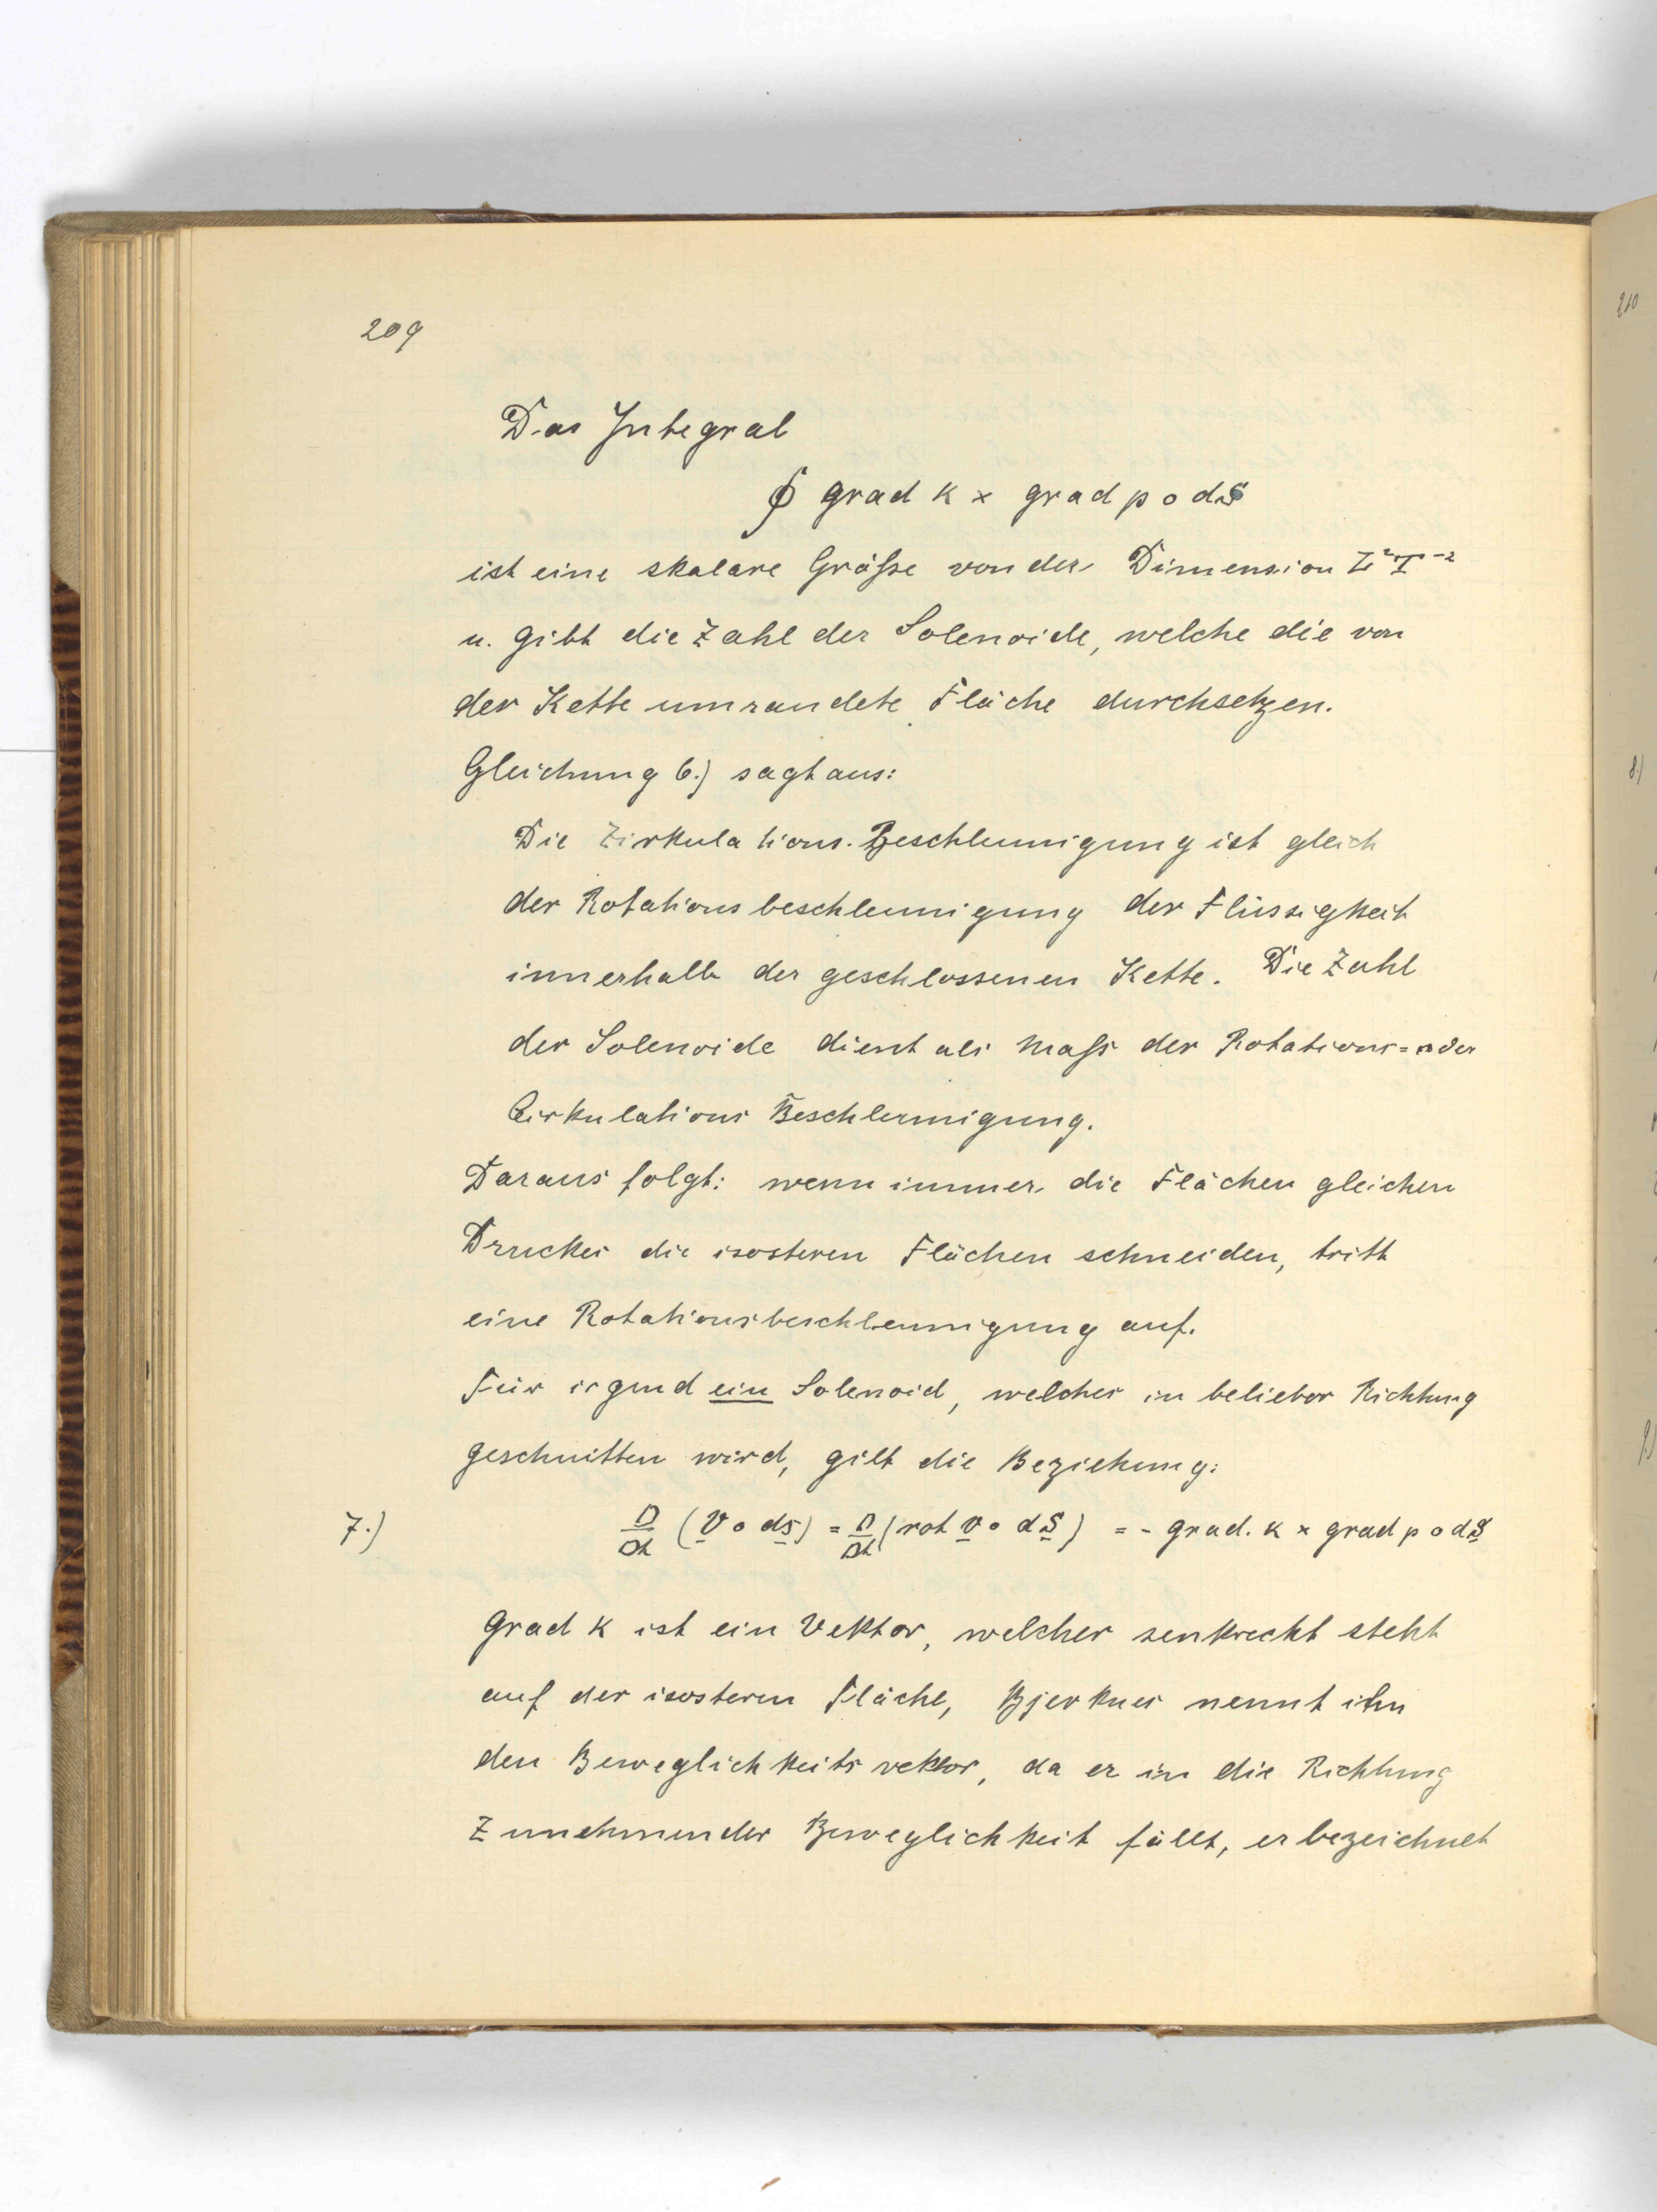 209
Das Integral
∮ grad k × grad p ∘ dS
ist eine skalare Größe von der Dimension L²T⁻²
u. gibt die Zahl der Solenoide, welche die von
der Kette umrandete Fläche durchsetzen.
Gleichung 6.) sagt aus:
Die Zirkulations-Beschleunigung ist gleich
der Rotationsbeschleunigung der Flüssigkeit
innerhalb der geschlossenen Kette. Die Zahl
der Solenoide dient als Maß der Rotations= oder
Cirkulations Beschleunigung.
Daraus folgt: wenn immer die Flächen gleichen
Druckes die isosteren Flächen schneiden, tritt
eine Rotationsbeschleunigung auf.
Für irgend ein Solenoid, welches in beliebor Richtung
geschnitten wird, gilt die Beziehung:
7.) D/Dt (v ∘ ds) = D/Dt (rot v ∘ dS) = - grad. k × grad p ∘ dS
Grad k ist ein Vektor, welcher senkrecht steht
auf der isosteren Fläche, Bjerknes nennt ihn
den Beweglichkeitsvektor, da er in die Richtung
Zunehmender Beweglichkeit fällt, er bezeichnet
210
8.)